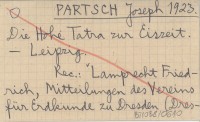 PARTSCH Joseph 1923.
Die Hohe Tatra zur Eiszeit.
— Leipzig.
Rec.: "Lamprecht Fried-
rich, Mitteilungen des Vereins
für Erdkunde zu Dresden (Dres-